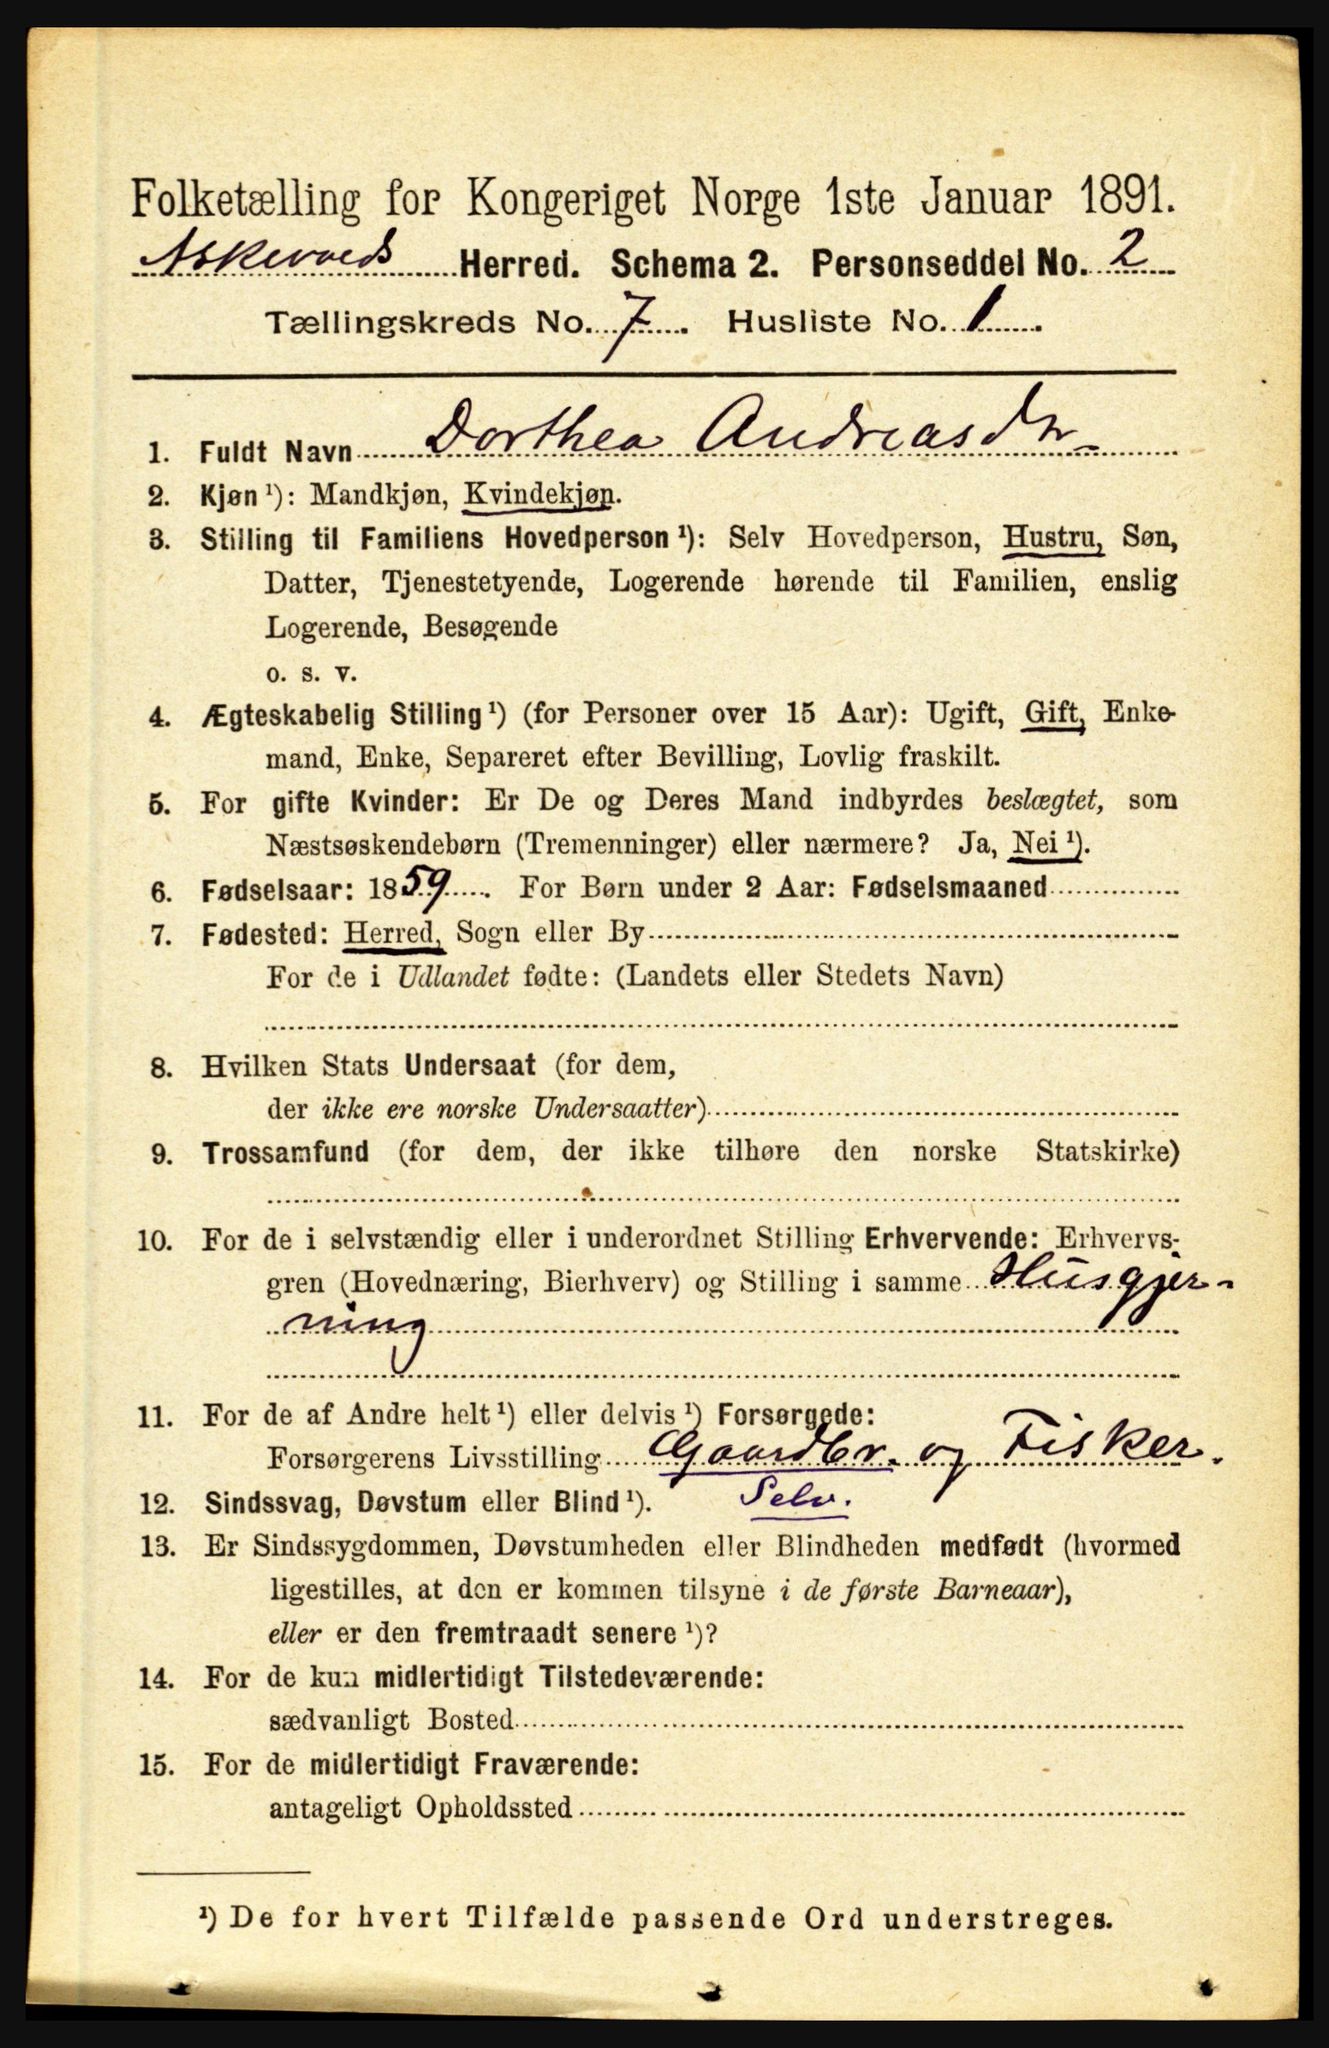 Folketælling for Kongeriget Norge 1ste Januar 1891.
Askevolds Herred. Schema 2. Personseddel No. 2
Tællingskreds No. 7. Husliste No. 1.
1. Fuldt Navn Dorthea Andreasdtr
2. Kjøn ¹): Mandkjøn, Kvindekjøn.
3. Stilling til Familiens Hovedperson ¹): Selv Hovedperson, Hustru, Søn,
Datter, Tjenestetyende, Logerende hørende til Familien, enslig
Logerende, Besøgende
o. s. v.
4. Ægteskabelig Stilling ¹) (for Personer over 15 Aar): Ugift, Gift, Enke-
mand, Enke, Separeret efter Bevilling, Lovlig fraskilt.
5. For gifte Kvinder: Er De og Deres Mand indbyrdes beslægtet, som
Næstsøskendebørn (Tremenninger) eller nærmere? Ja, Nei ¹).
6. Fødselsaar: 1859. For Børn under 2 Aar: Fødselsmaaned
7. Fødested: Herred, Sogn eller By
For de i Udlandet fødte: (Landets eller Stedets Navn)
8. Hvilken Stats Undersaat (for dem,
der ikke ere norske Undersaatter)
9. Trossamfund (for dem, der ikke tilhøre den norske Statskirke)
10. For de i selvstændig eller i underordnet Stilling Erhvervende: Erhvervs-
gren (Hovednæring, Bierhverv) og Stilling i samme Husgjer-
ning
11. For de af Andre helt ¹) eller delvis ¹) Forsørgede:
Forsørgerens Livsstilling Gaardbr. og Fisker.
12. Sindssvag, Døvstum eller Blind ¹). Selv.
13. Er Sindssygdommen, Døvstumheden eller Blindheden medfødt (hvormed
ligestilles, at den er kommen tilsyne i de første Barneaar),
eller er den fremtraadt senere ¹)?
14. For de kun midlertidigt Tilstedeværende:
sædvanligt Bosted
15. For de midlertidigt Fraværende:
antageligt Opholdssted
¹) De for hvert Tilfælde passende Ord understreges.